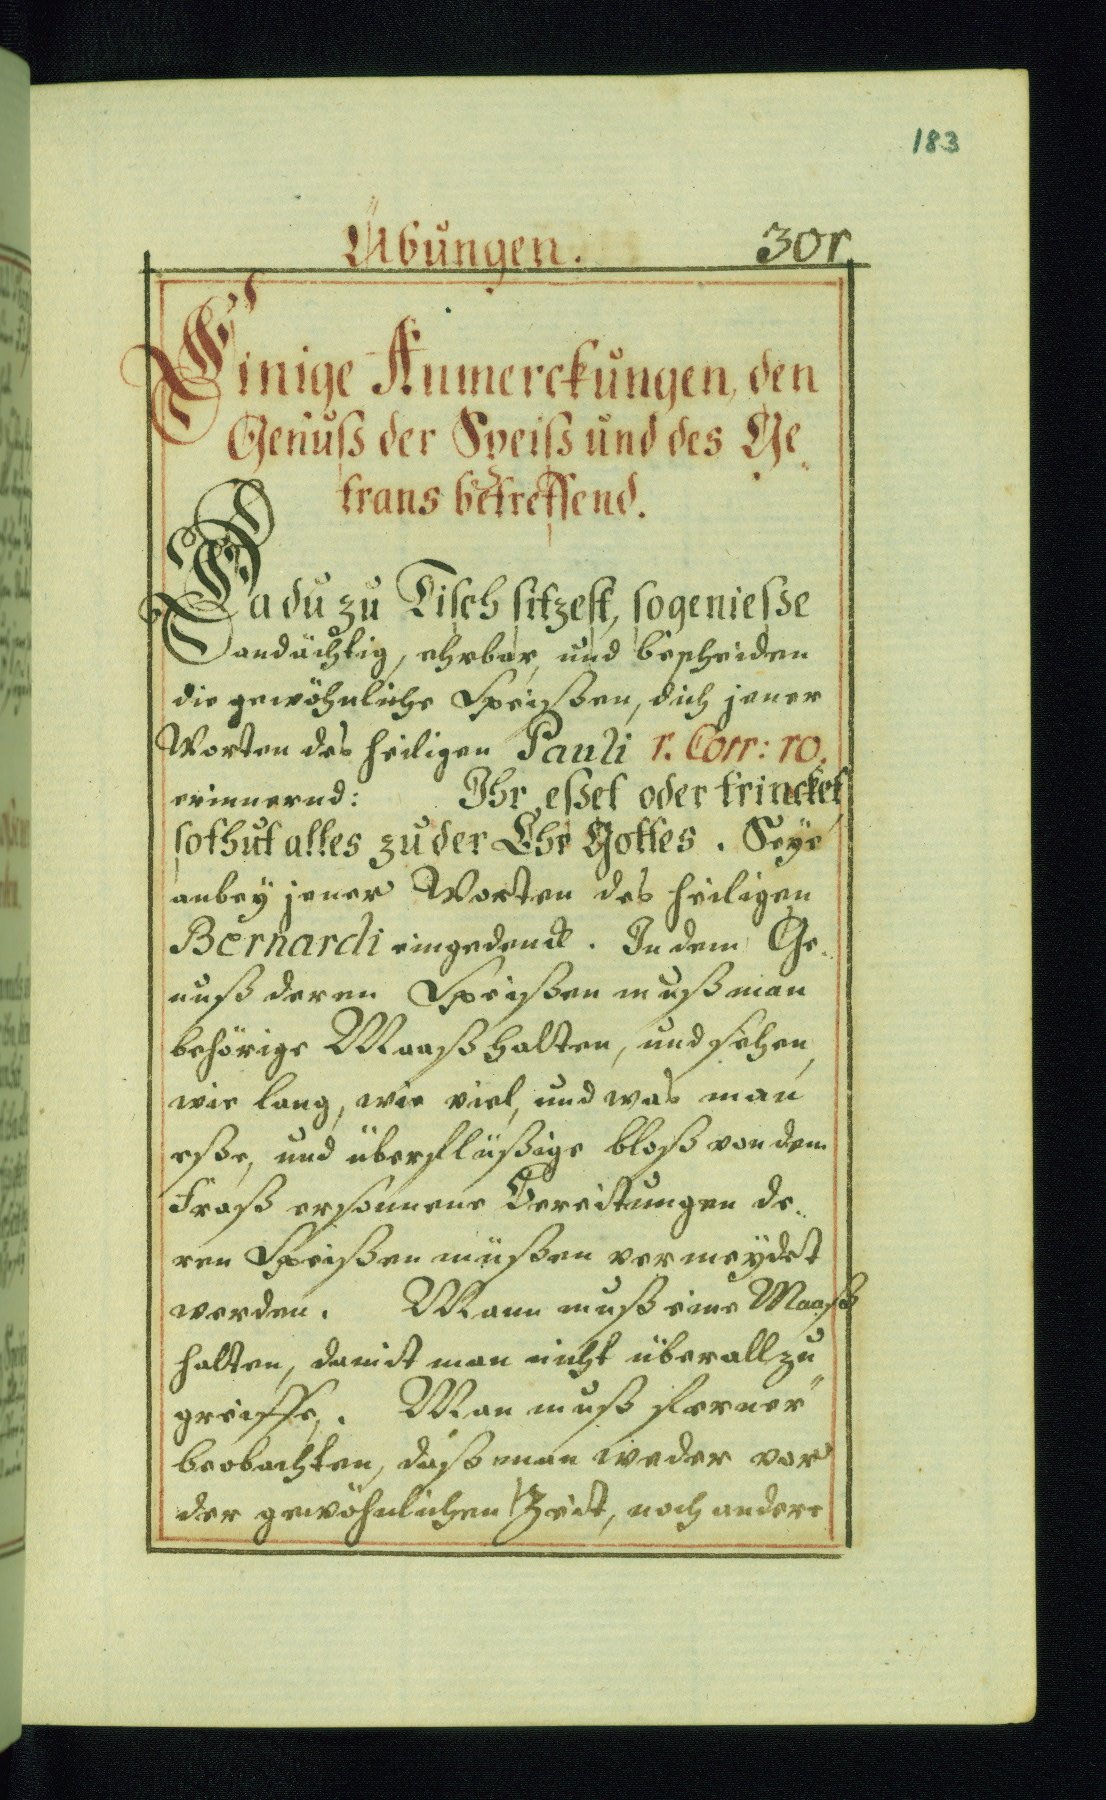 183
Übungen. 301.
Einige Anmerckungen, den
Genuß der Speiß und des Ge-
trans betreffend.
Da du zu Tisch sitzest, so geniesße
andächtig, ehrbar, und bescheiden
die gewöhnliche Speißen, dich jener
Worten des heiligen Pauli 1. Corr: 10.
erinnernd: Ihr eßet oder trincket
so thut alles zu der Ehr Gottes. Seye
anbey jener Worten des heiligen
Bernardi eingedenck. In dem Ge-
nuß deren Speißen muß man
behörige Maaß halten, und sehen,
wie lang, wie viel, und was man
eße, und überflüßige bloß von dem
Fraß ersonnene Bereitungen de-
ren Speißen müßen vermeydet
werden. Mann muß eine Maaß
halten, damit man nicht überall zu
greiffe. Man muß ferner
beobachten, daß man weder vor
der gewöhnlichen Zeit, noch andere